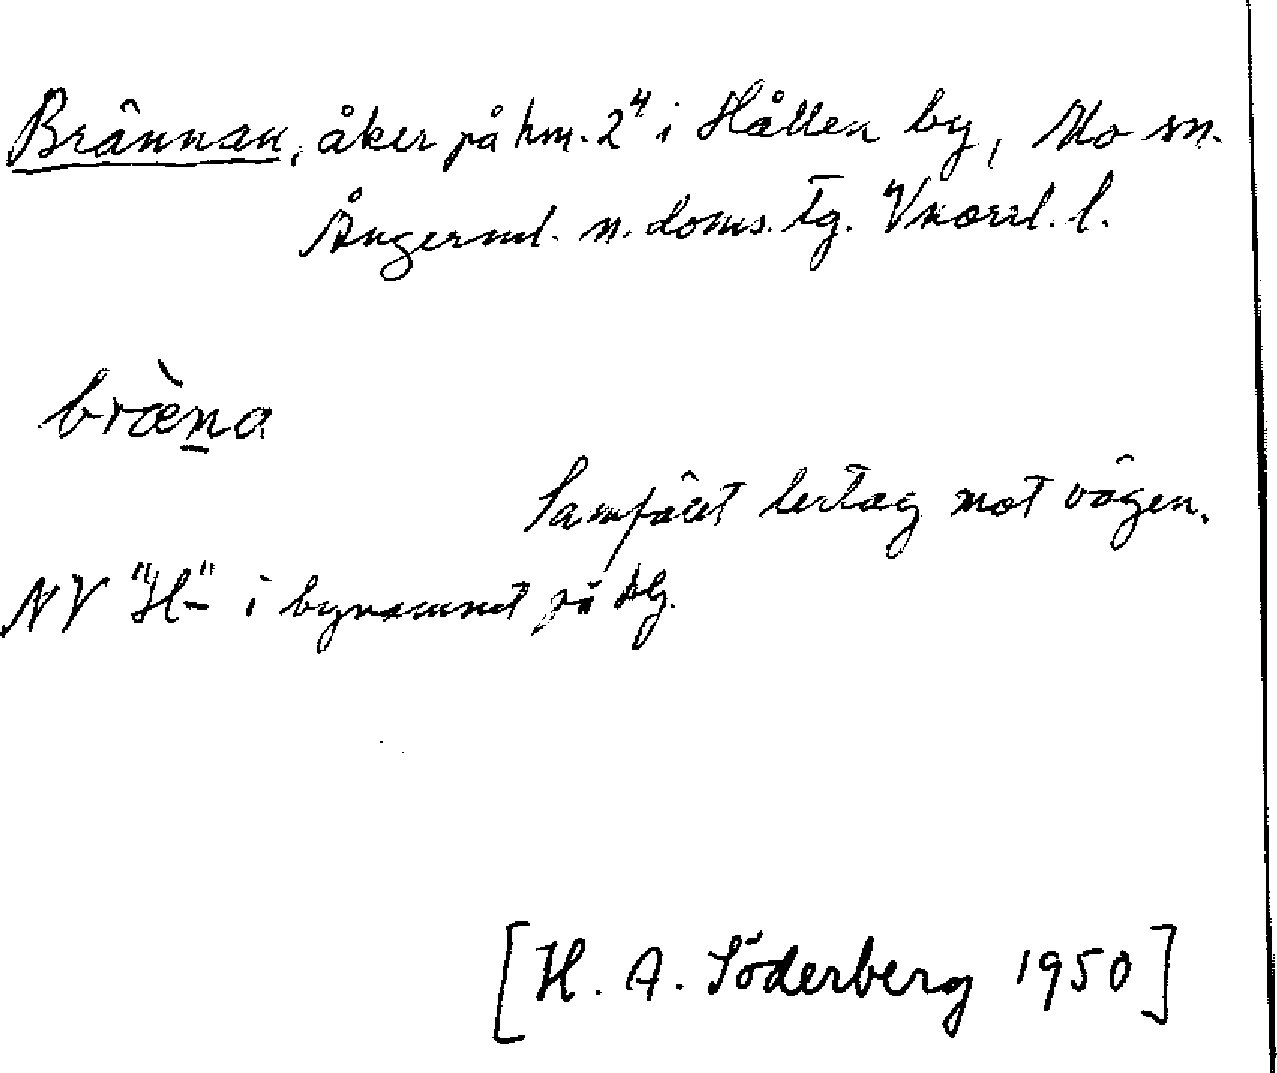 Brännan, åker på hm. 2⁴ i Hållen by, Mo sn.
Ångerml. n. doms. tg. Vnorrl. l.
bræ̀n̲a
Samfällt lertag mot vägen.
NV "H-" i bynamnet på blg.
[H. A. Söderberg 1950]